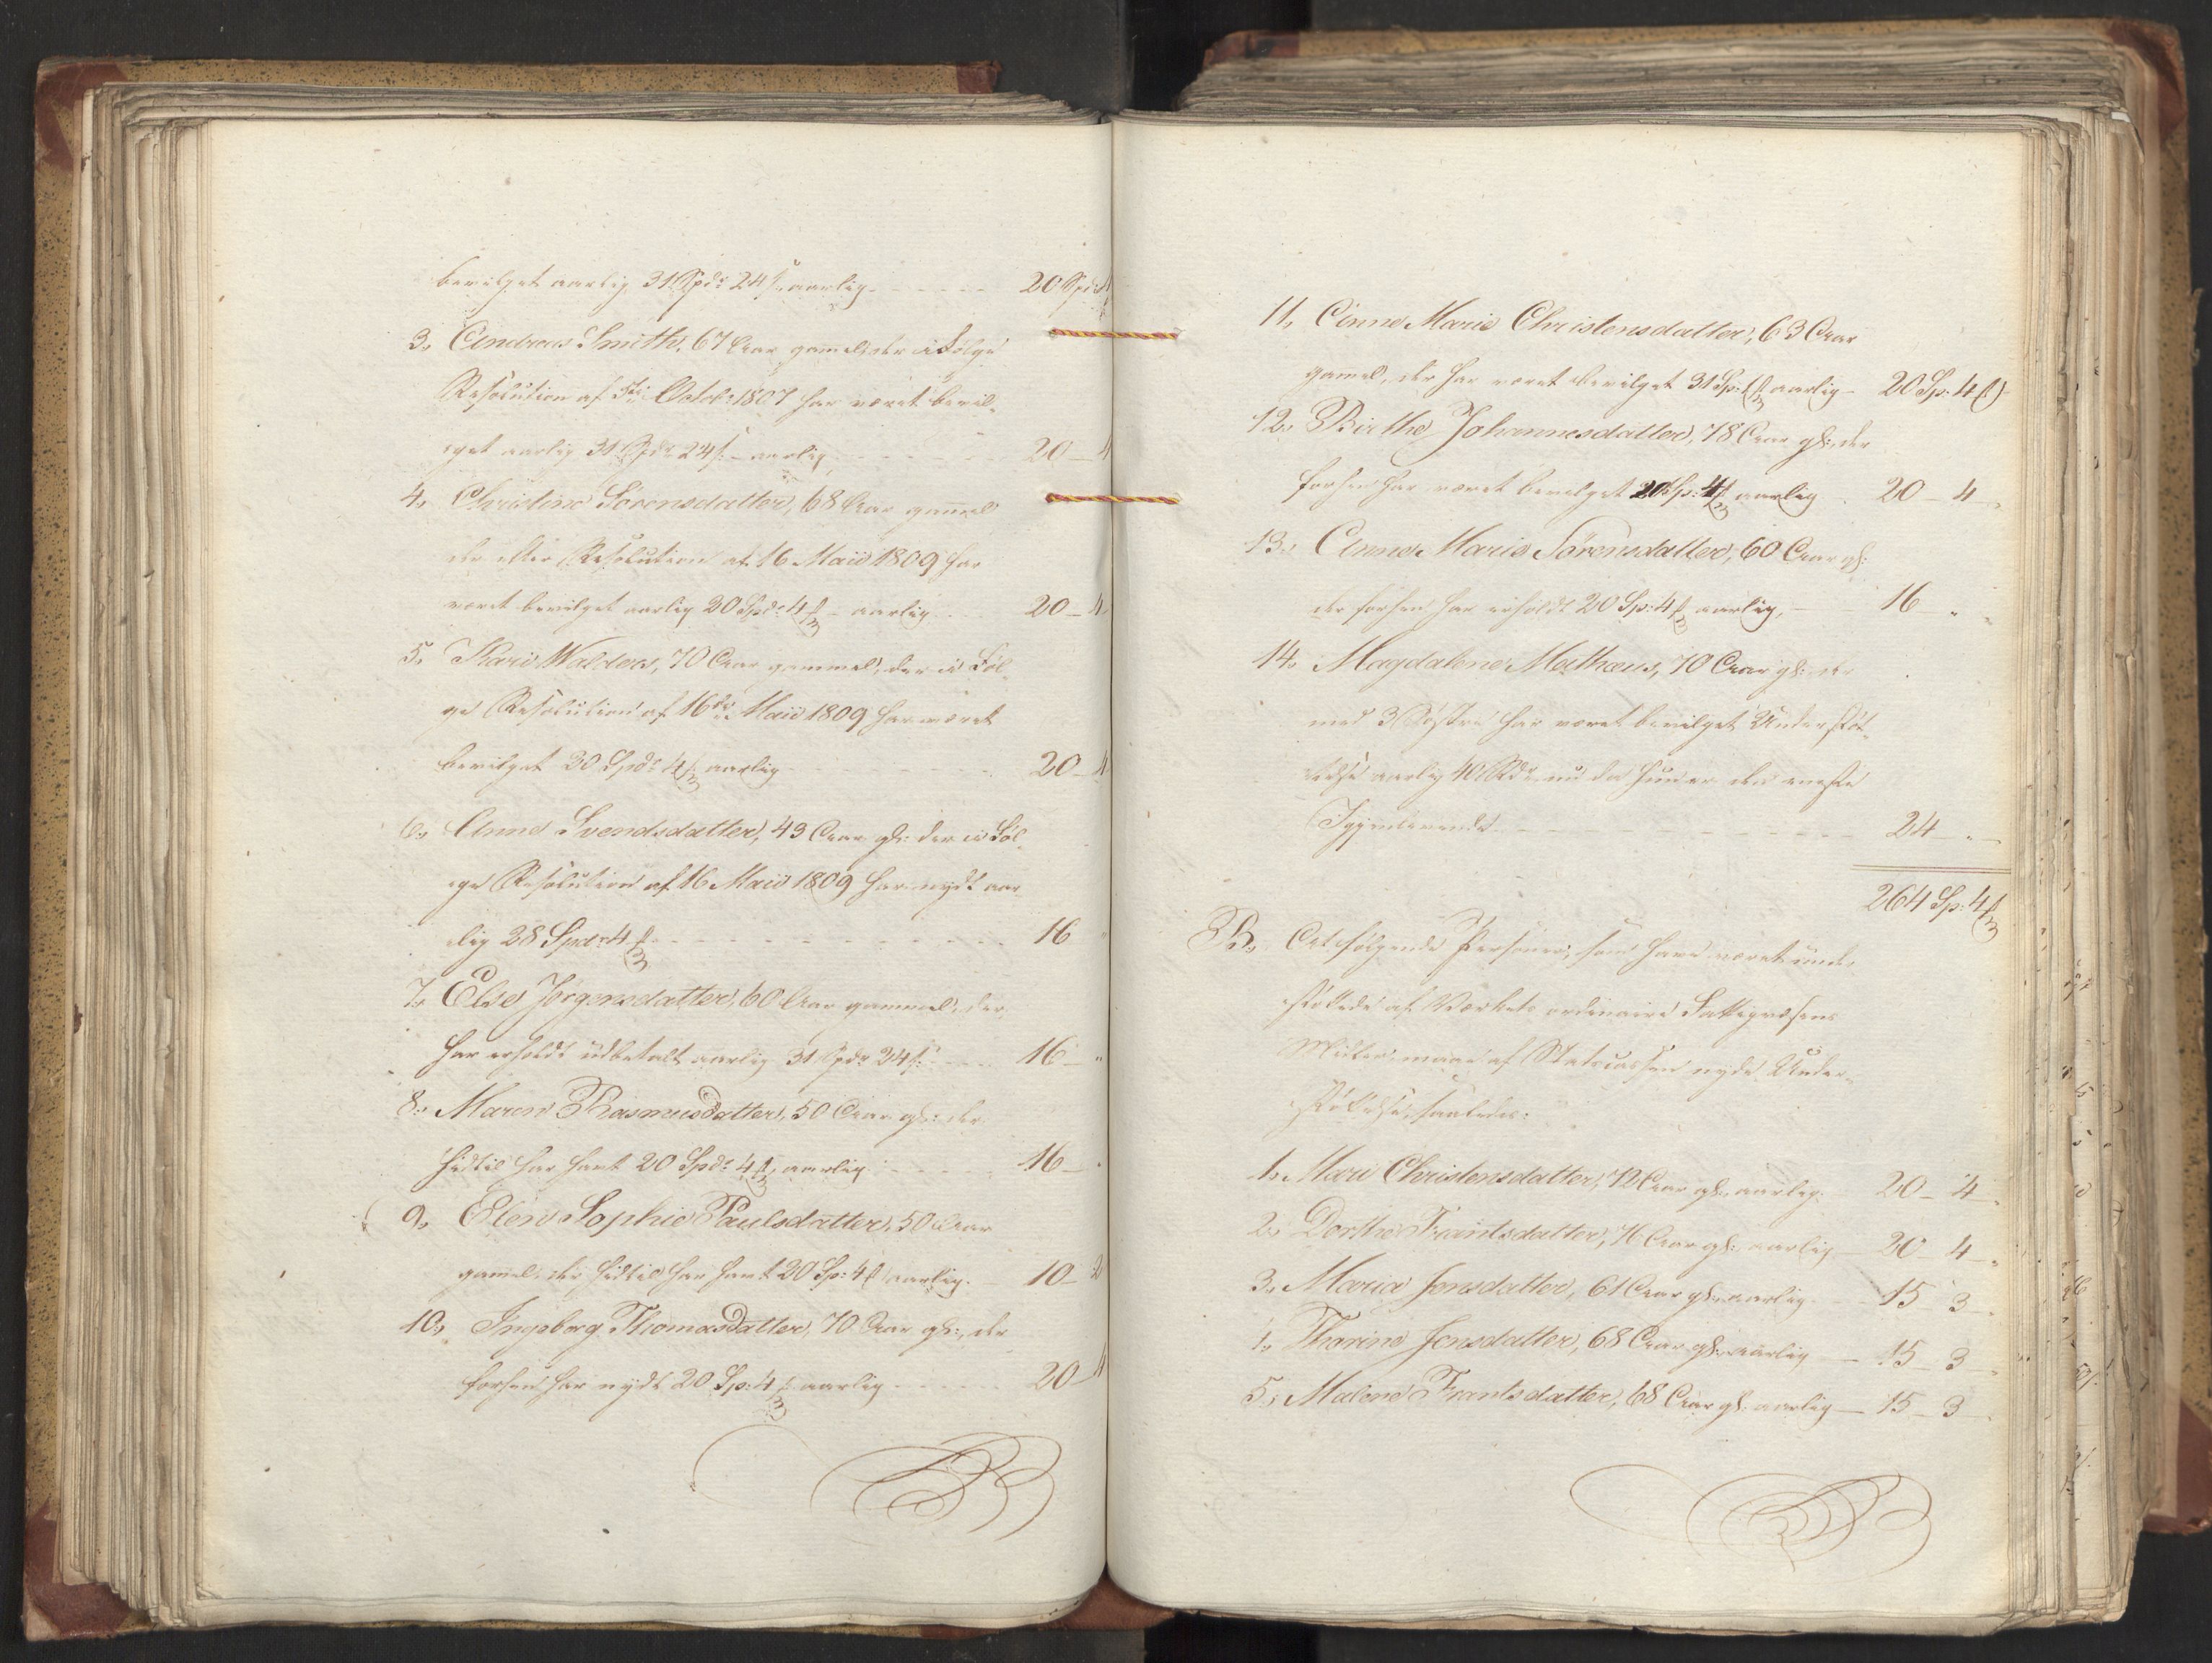 bevilget aarlig 31 Spd: 24 s. aarlig 20 Spd 4
3, Andreas Smith, 67 Aar gamel, der i Følge
Resolution af 5te Octobr 1807 har været bevil-
get aarlig 31 Spdr 24 s. aarlig 20 - 4
4, Christine Sörensdatter, 68 Aar gamel
der efter Resolution af 16 Maii 1809 har
været bevilget aarlig 20 Spdr 4 aarlig 20 - 4
5, Kari Walders, 70 Aar gammel, der i Føl-
ge Resolution af 16de Maii 1809 har været
bevilget 20 Spdr 4 aarlig 20 - 4
6, Anne Svendsdatter, 43 Aar gl: der i Føl-
ge Resolution af 16 Maii 1809 har nydt aar-
lig 28 Spdr 4 16 "
7, Else Jörgensdatter, 60 Aar gammel, der
har erholdt udbetalt aarlig 31 Spdr 24 s. 16 - "
8, Maren Rasmusdatter, 50 Aar gl: der
hidtil har havt 20 Spdr 4 aarlig 16 -
9, Elen Sophie Paulsdatter, 50 Aar
gamel, der hidtil har havt 20 Sp: 4 aarlig. 10 - 2
10, Ingeborg Thomasdatter, 70 Aar gl:, der
forhen har nydt 20 Sp: 4 aarlig 20 - 4
11, Anne Marie Christensdatter, 63 Aar
gamel, der har været bevilget 31 Sp: aarlig - 20 Sp: 4
12, Birthe Johannesdatter, 78 Aar gl: der
forhen har været bevilget 20 Sp: 4 aarlig 20 - 4
13, Anne Marie Sörensdatter, 60 Aar gl:
der forhen har erholdt 20 Sp: 4 aarlig, 16 "
14, Magdalene Mathæus, 70 Aar gl: der
med 3 Søstre har været bevilget Understøt-
telse aarlig 40 Rdr nu da hun er den eneste
Igjenlevende 24 "
264 Sp: 4
B, At følgende Personer, som have været under-
støttede af Værkets ordinaire Fattigvæsens
Midler, maae af Statscassen nyde Under-
støttelse, saaledes:
1, Mari Christensdatter, 72 Aar gl: aarlig. 20 - 4
2, Dorthe Frantsdatter, 76 Aar gl: aarlig 20 - 4
3, Maria Jensdatter, 61 Aar gl: aarlig 15 3
4, Thorine Jensdatter, 68 Aar gl: aarlig 15 - 3
5, Malene Frantsdatter, 68 Aar gl: aarlig 15 - 3